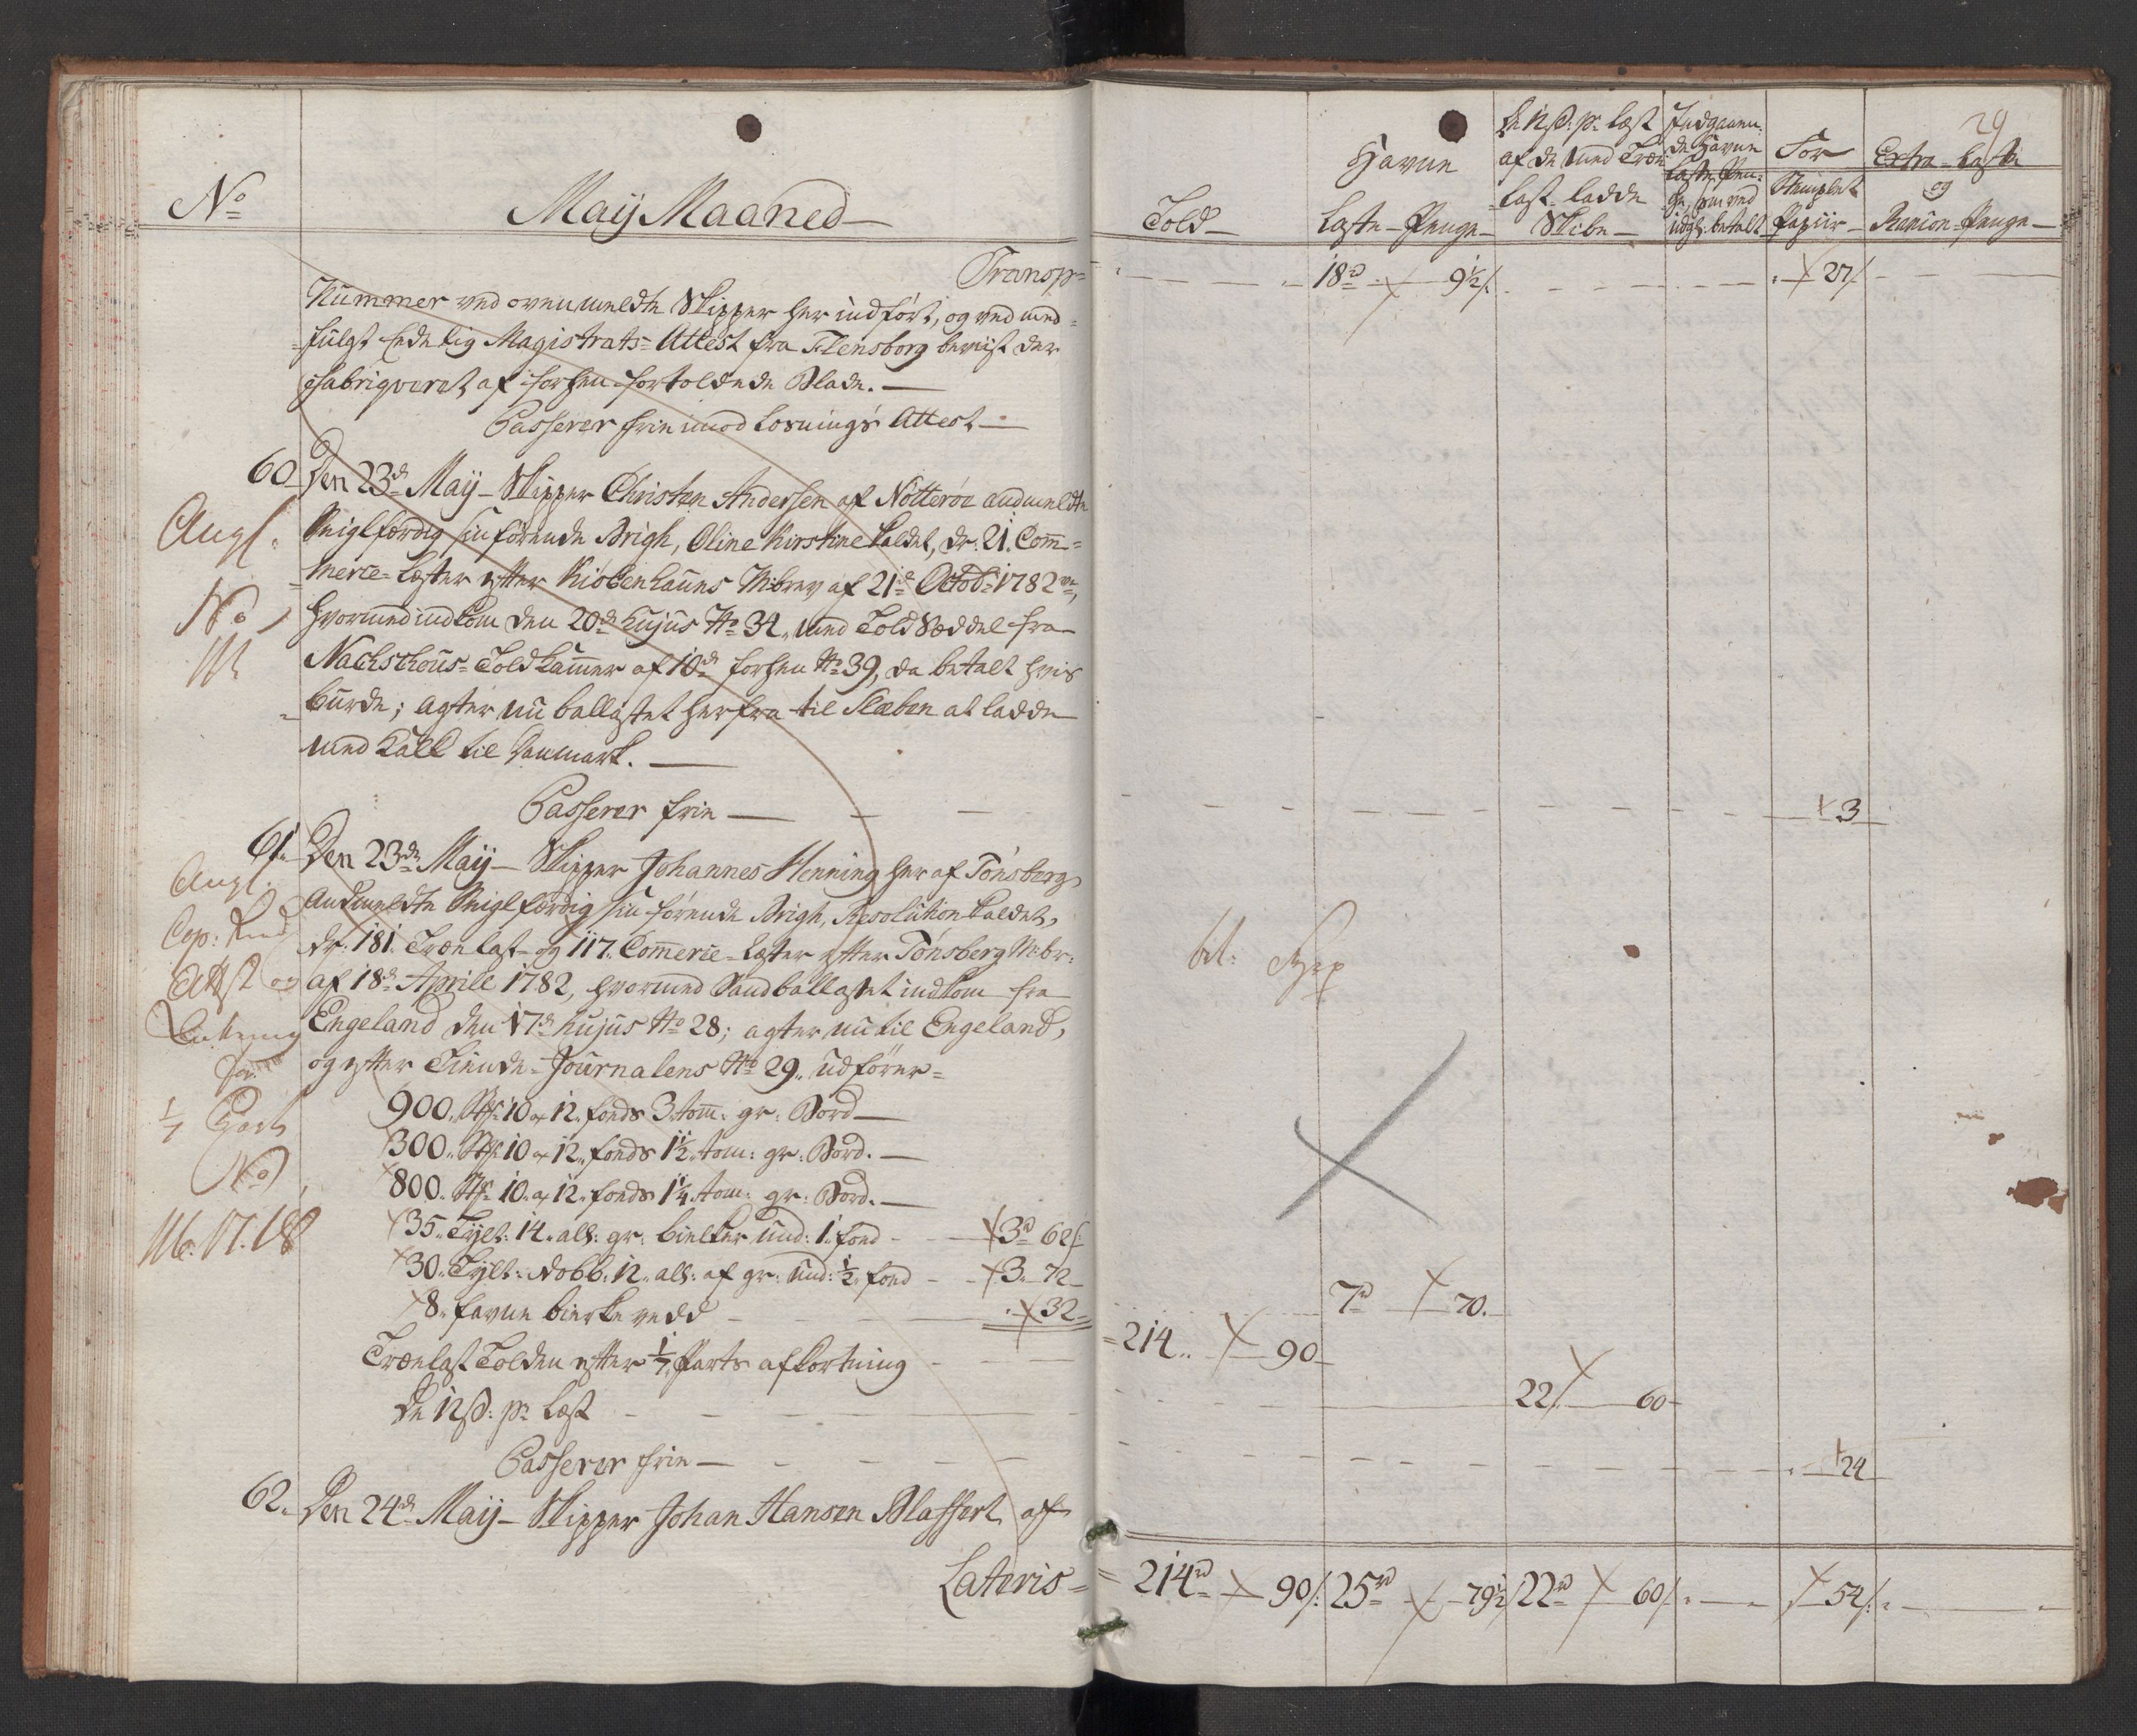 29
No
Maij Maaned
Told
Havne
Læste-Penge
De 12 ß: pr Læst
af de med Træe-
last ladde
Skibe
Indgaaen-
de Havne
Læste Pen-
ge, som ved
udgl: betalt
For
Stemplet
Papiir
Extra-Laste
og
Rancion-Penge
Transp=
18rd 9½ ß. 27 ß
Nummer ved ovenmeldte Skipper her indført, og ved med-
fulgt Edelig Magistrats-Attest fra Flensborg beviist der
fabriqveret af forhen fortoldede Blade.
Passerer frie imod Losnings Attest
60 Den 23de Maij Skipper Christen Andersen af Nøtterøe andmeldte
Seiglfærdig sin førende Brigh, Oline Kirstine kaldet, dr: 21. Com-
merce-Læster efter Kiøbenhauns Mbrev af 21de Octobr 1782,
hvormed indkom den 20de hujus No 34, med Told Seddel fra
Nachschous-Toldkammer af 10de forhen No 39, da betalt hvis
burde; agter nu ballastet herfra til Slæben at ladde
med Kalk til Danmark.
Angl.
No
Passerer frie
3
61. Den 23de Maij Skipper Johannes Henning her af Tønsberg
Andmeldte Seiglfærdig sin førende Brigh, Resolution kaldet,
dr: 181. Trælast- og 117. Comerce-Læster efter Tønsberg Mbr:
af 18de Aprill 1782, hvormed Sandballastet indkom fra
Engeland den 17de hujus No 28; agter nu til Engeland,
og efter Tiende-Journalens No 29. udfører=
Angl.
Attest og
1/7 Part
No
16. 17. 18
900. Stk: 10 a 12. fods 3. tom: gr: Bord
300. Stk: 10 a 12. fods 1½. tom: gr: Bord.
800. Stk: 10. a 12. fods 1¼. tom: gr: Bord.
35. Tylt: 14. all: gr: bielker und: 1. fod 3rd 62 ß
30. Tylt: Sobb: 12. all: af gr: und: ½. fod 3. 72
8. favne birke vedd 32 7rd 70.
Trælast Tolden efter 1/7 Parts afkortning 214.. 90
De 12 ß: pr Læst 22 60
Passerer frie 24
62. Den 24de Maij Skipper Johan Hansen Blassert af
Lateris= 214rd 90 ß. 25rd 79½ 22rd 60 ß. 54 ß.